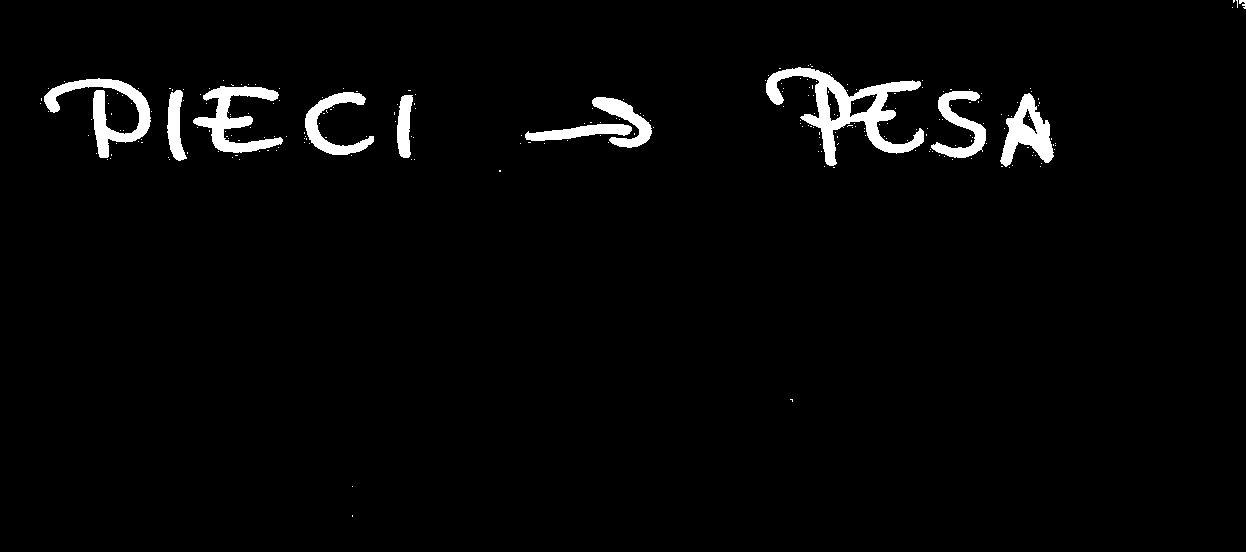 DIECI → PESA